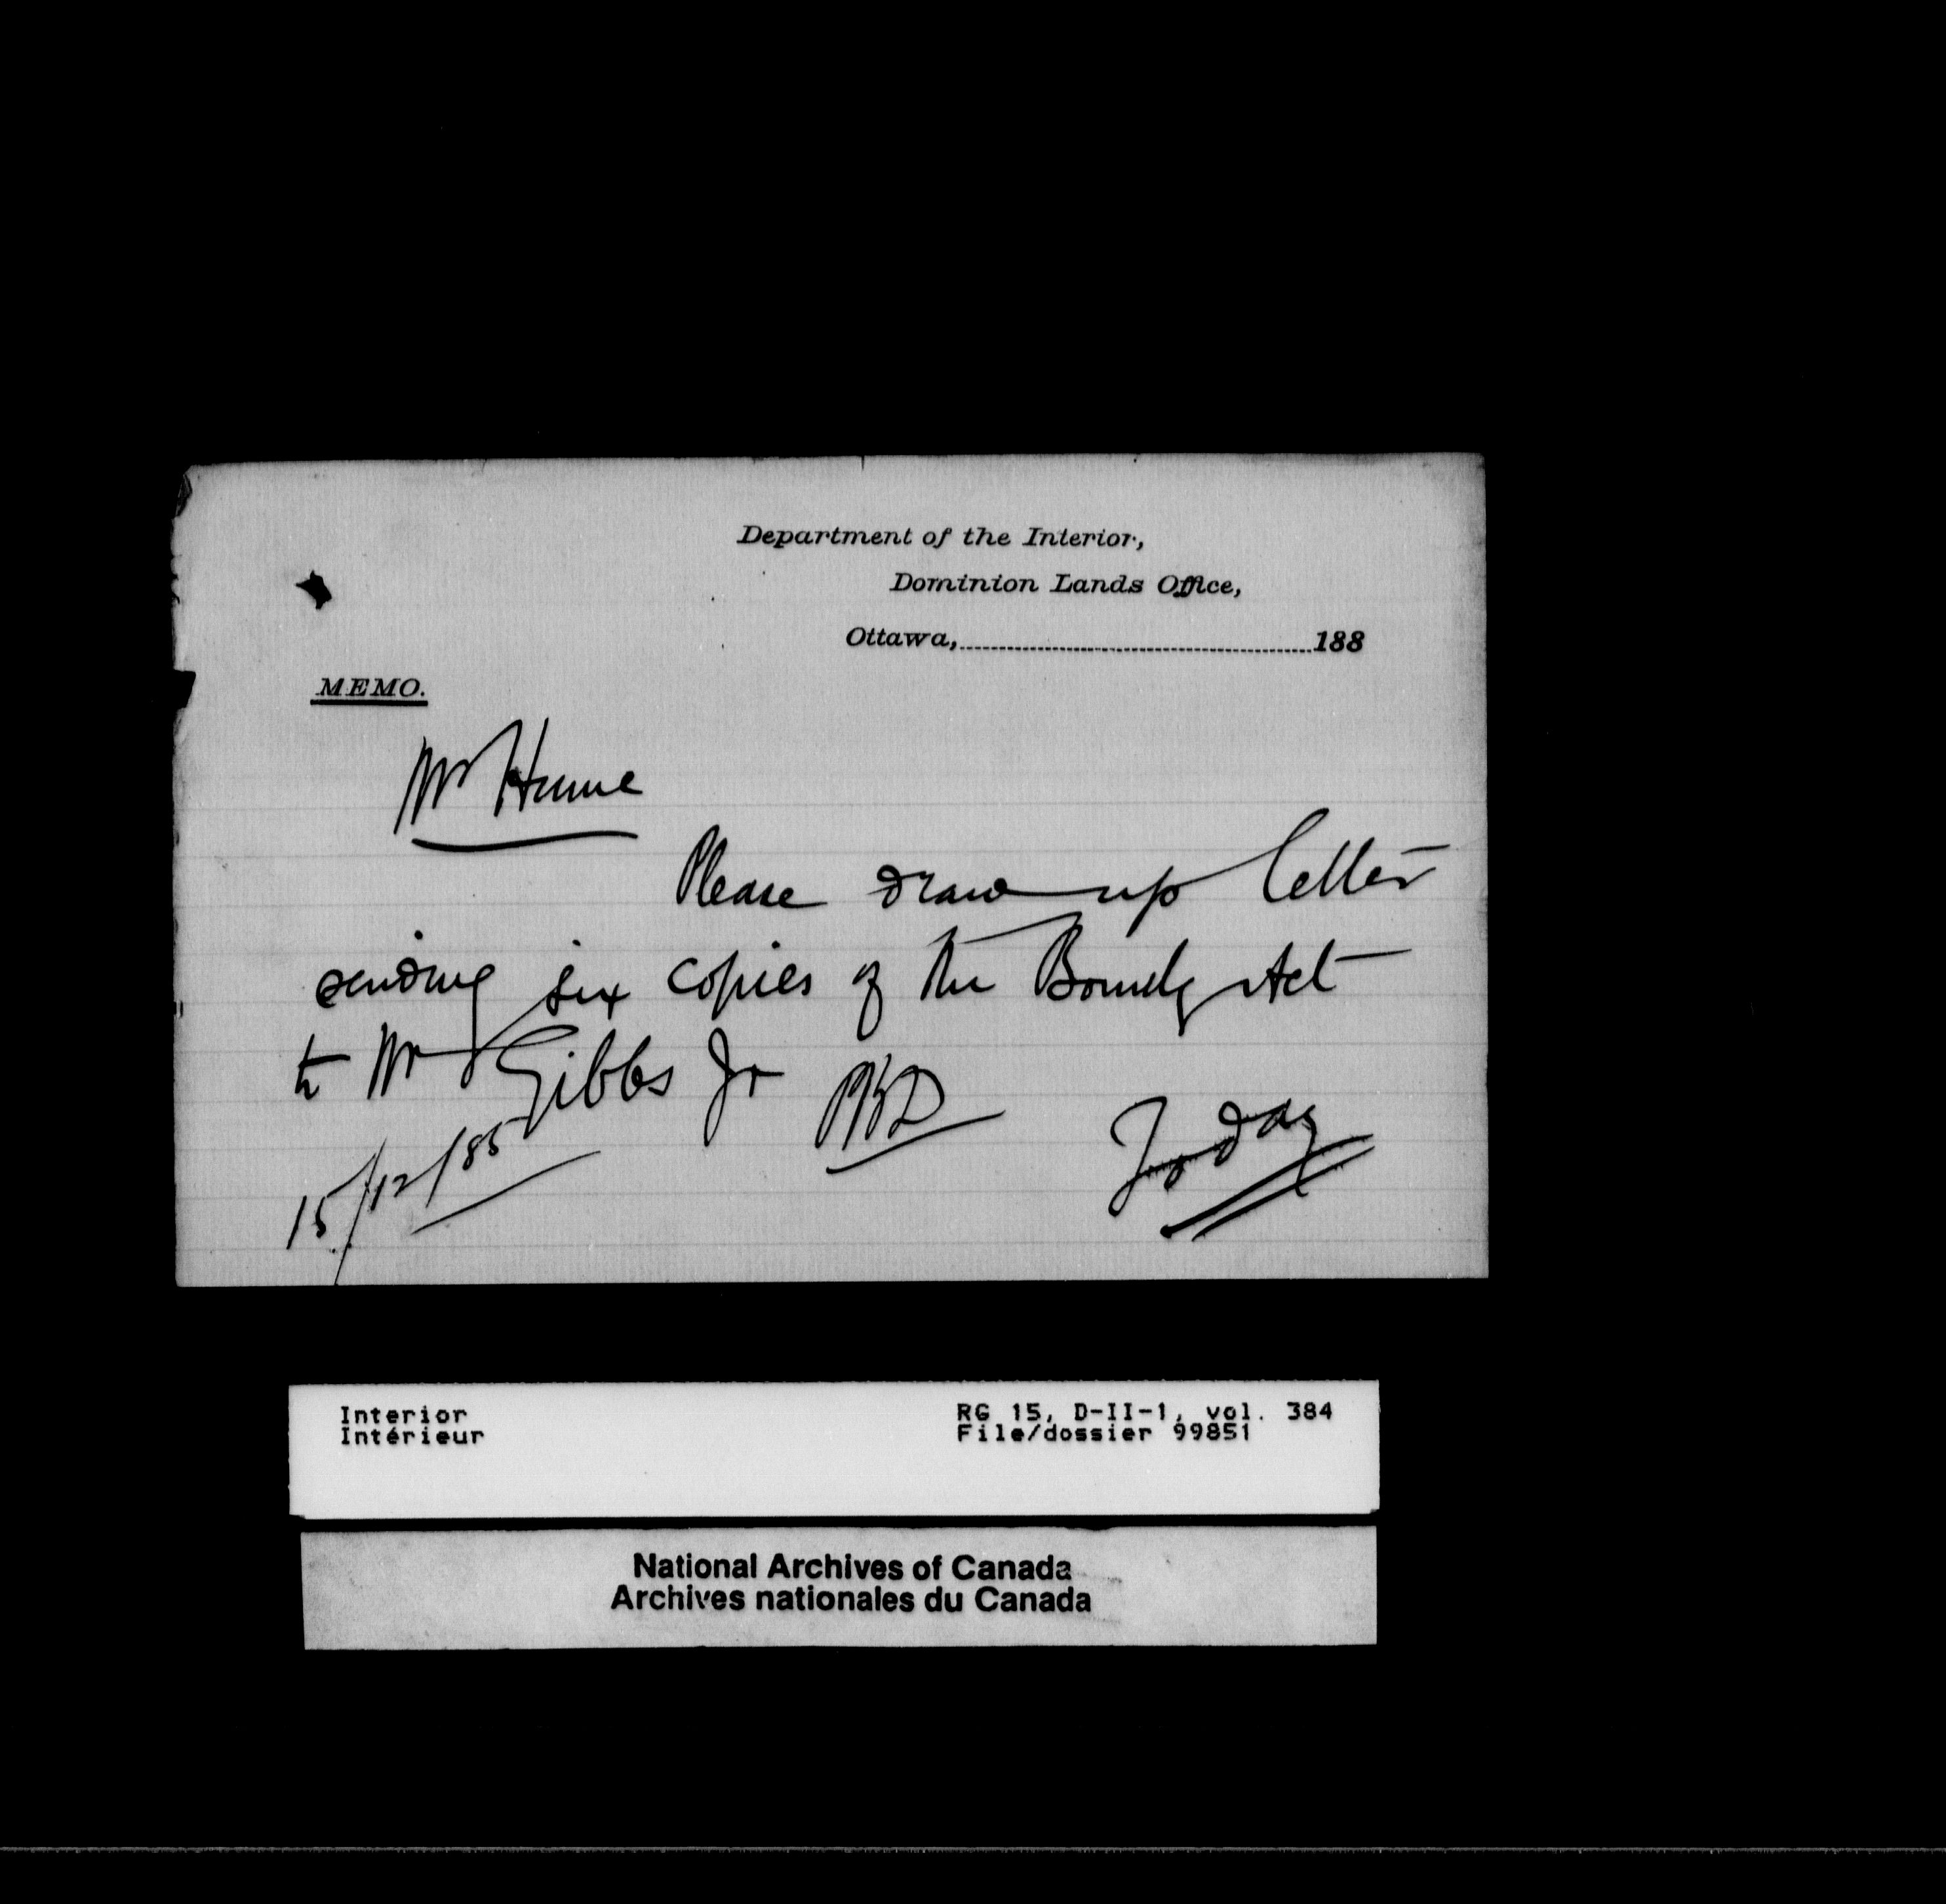 Department of the Interior,
Dominion Lands Office,
Ottawa, 188
MEMO.
Mr Hume
Please draw up letter
sending six copies of the Bounty Act
to Mr Gibbs Jr
Today
15/12/85
Interior
Intérieur
RG 15, D-II-1, vol. 384
File/dossier 99851
National Archives of Canada
Archives nationales du Canada